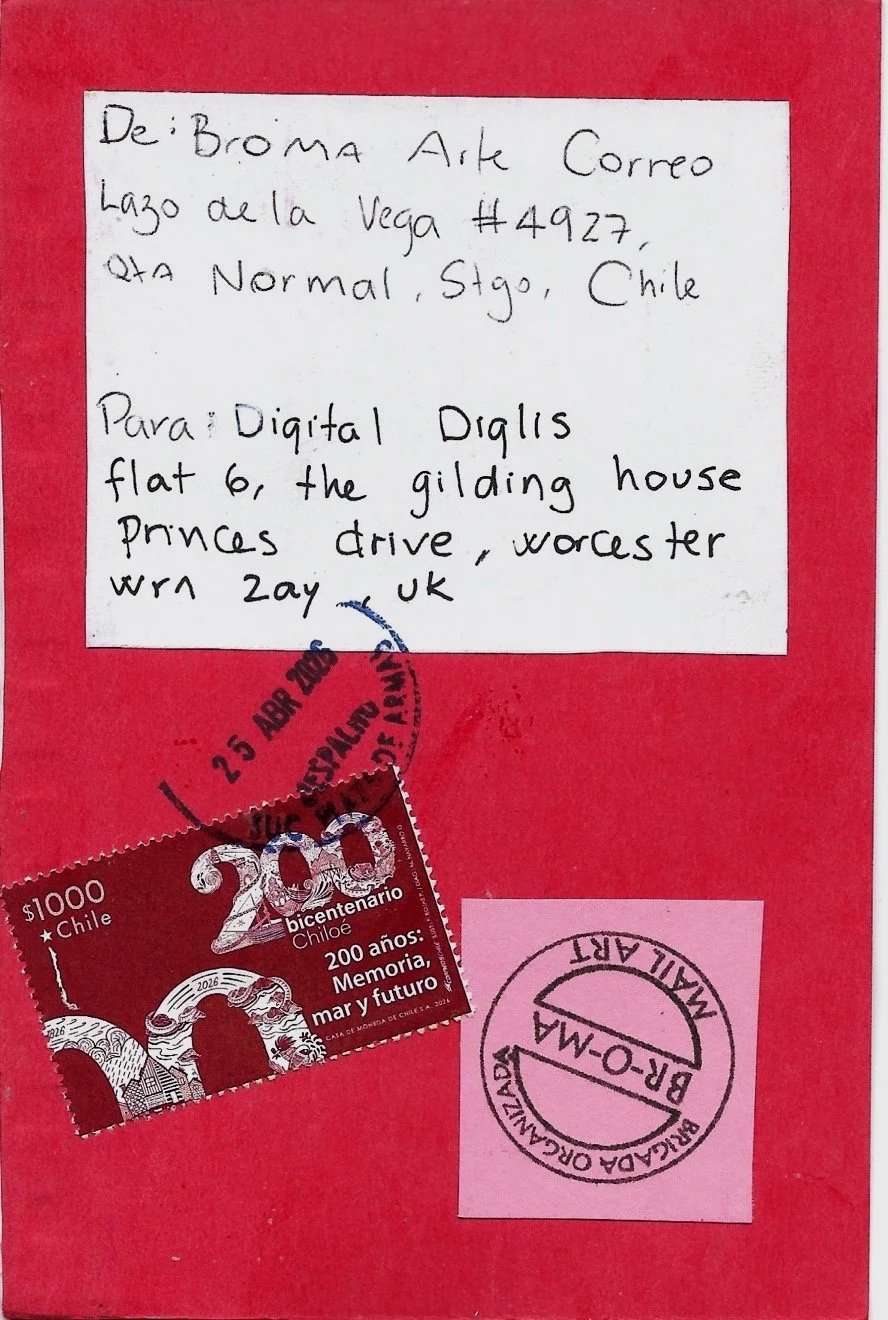 De: BroMA Arte Correo
Lazo de la Vega #4927,
Qta Normal, Stgo, Chile
Para: Digital Diglis
flat 6, the gilding house
Princes drive, worcester
wr1 2ay, uk
25 ABR 2026
SUC
DE ARMAS
$1000
Chile
200
bicentenario
Chiloé
200 años:
Memoria,
mar y futuro
CASA DE MONEDA DE CHILE S.A. 2026
1826
2026
MAIL ART
BR-O-MA
BRIGADA ORGANIZADA